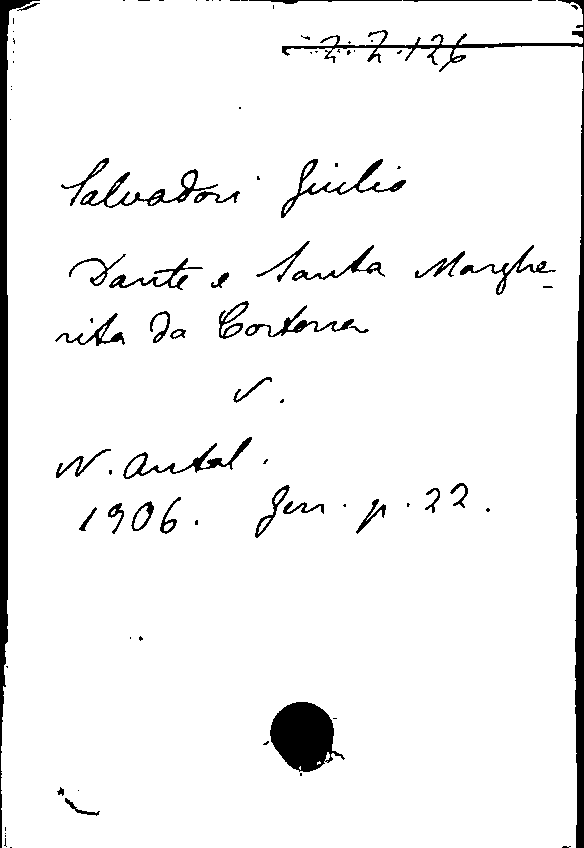 2.2.126
Salvadori Giulio
Dante e Santa Marghe-
rita da Cortona
v.
N. Antol.
1906. Gen. p. 22.